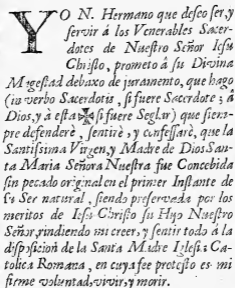 YO N. Hermano que deseo ser, y
servir à los Venerables Sacer-
dotes de Nuestro Señor Iesu
Christo, prometo à su Divina
Magestad debaxo de juramento, que hago
(in verbo Sacerdotis, si fuere Sacerdote; à
Dios, y à esta ✠ si fuere Seglar) que siem-
pre defenderè, sentirè, y confessarè, que la
Santissima Virgen, y Madre de Dios San-
ta Maria Señora Nuestra fue Concebida
sin pecado original en el primer Instante de
su Ser natural, siendo preservada por los
meritos de Iesu Christo su Hijo Nuestro
Señor, rindiendo mi creer, y sentir todo à la
disposicion de la Santa Madre Iglesia Ca-
tolica Romana, en cuya fee protesto es mi
firme voluntad, vivir, y morir.